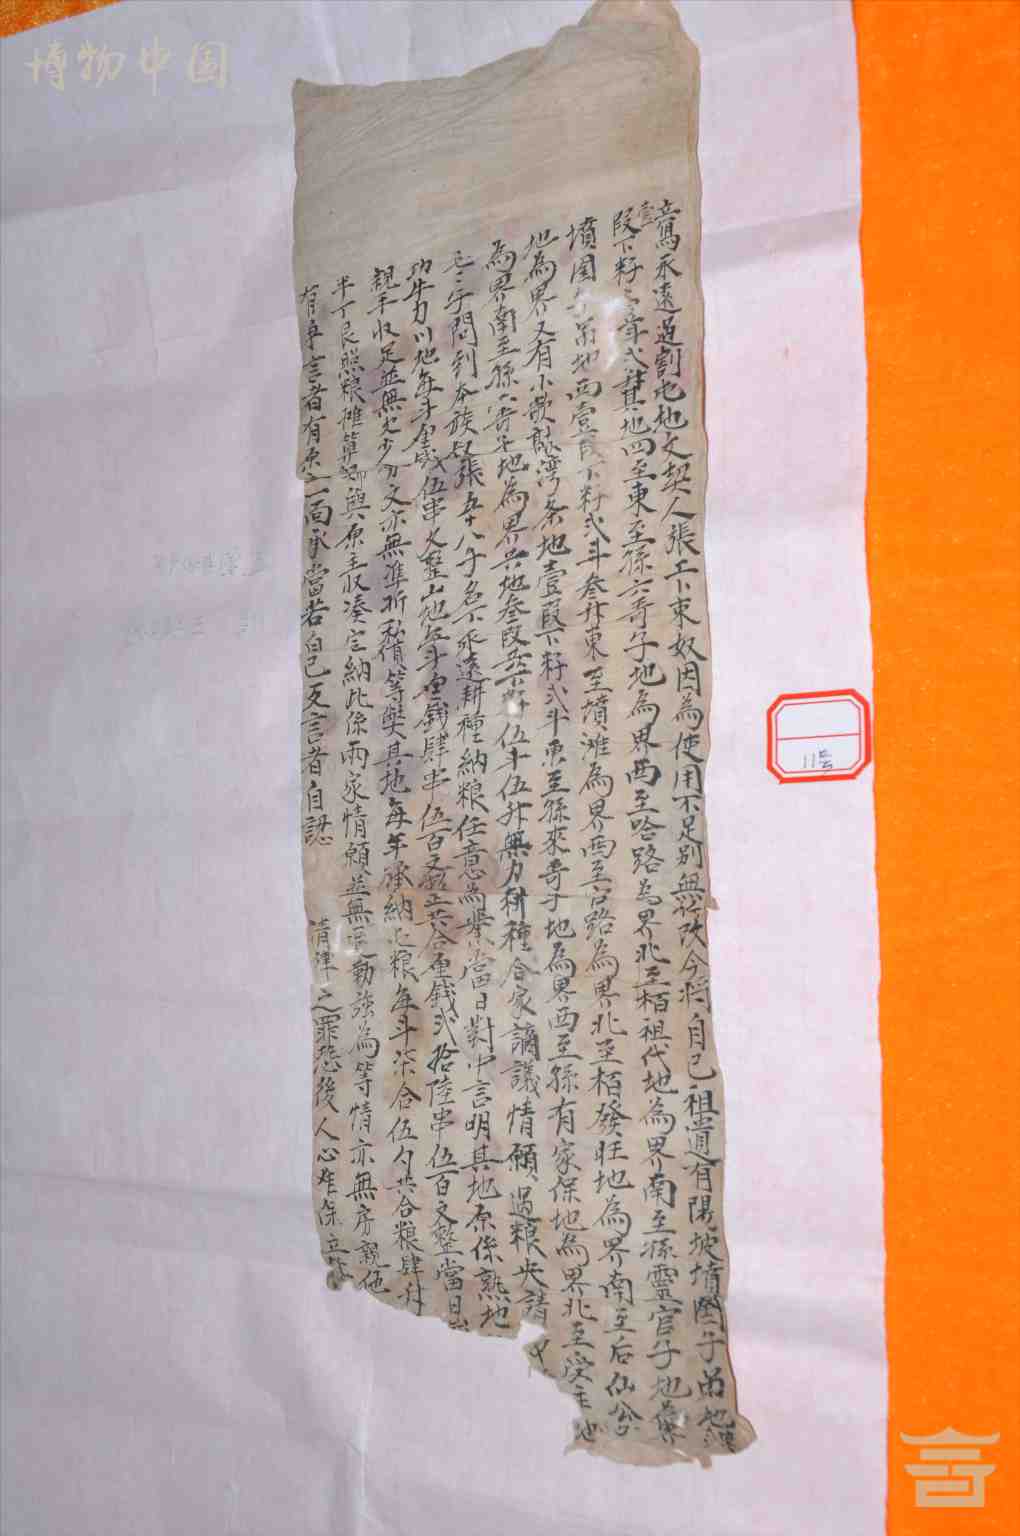 博物中国
立寫永遠過割屯地文契人張工下束奴因為使用不足別無從改今將自己祖遺有陽坡墳圈子吊地
壹段下籽弍斗其地四至東至孫六哥子地為界西至哈路為界北至栢祖代地為界南至孫靈官子地為界
墳圈子吊地西壹段下籽弍斗叁升東至墳灘為界西至官路為界北至栢發旺地為界南至后仙
地為界又有小散灣條地壹段下籽弍斗東至孫來哥子地為界西至孫有家保地為界北至受主地
為界南至孫六哥子地為界共地叁段共下籽伍斗伍升無力耕種合家謫議情願過粮央請中
問到本族叔張五十八子名下永遠耕種納粮任意為業當日對中言明其地原係熟地
川地每斗錢伍串文整山地每斗錢肆串伍百文整共合錢弍拾陸串伍百文整當日
親手收足並無欠少分文亦無準折私債等獘其地每年承納屯粮每斗柒合伍勺共合粮肆升
半丁艮照粮攤算與原主収湊完納此係兩家情願並無勒強為等情亦無房親
有爭言者有一面承當若自己反言者自認 清律之罪恐後人心難保立
11号